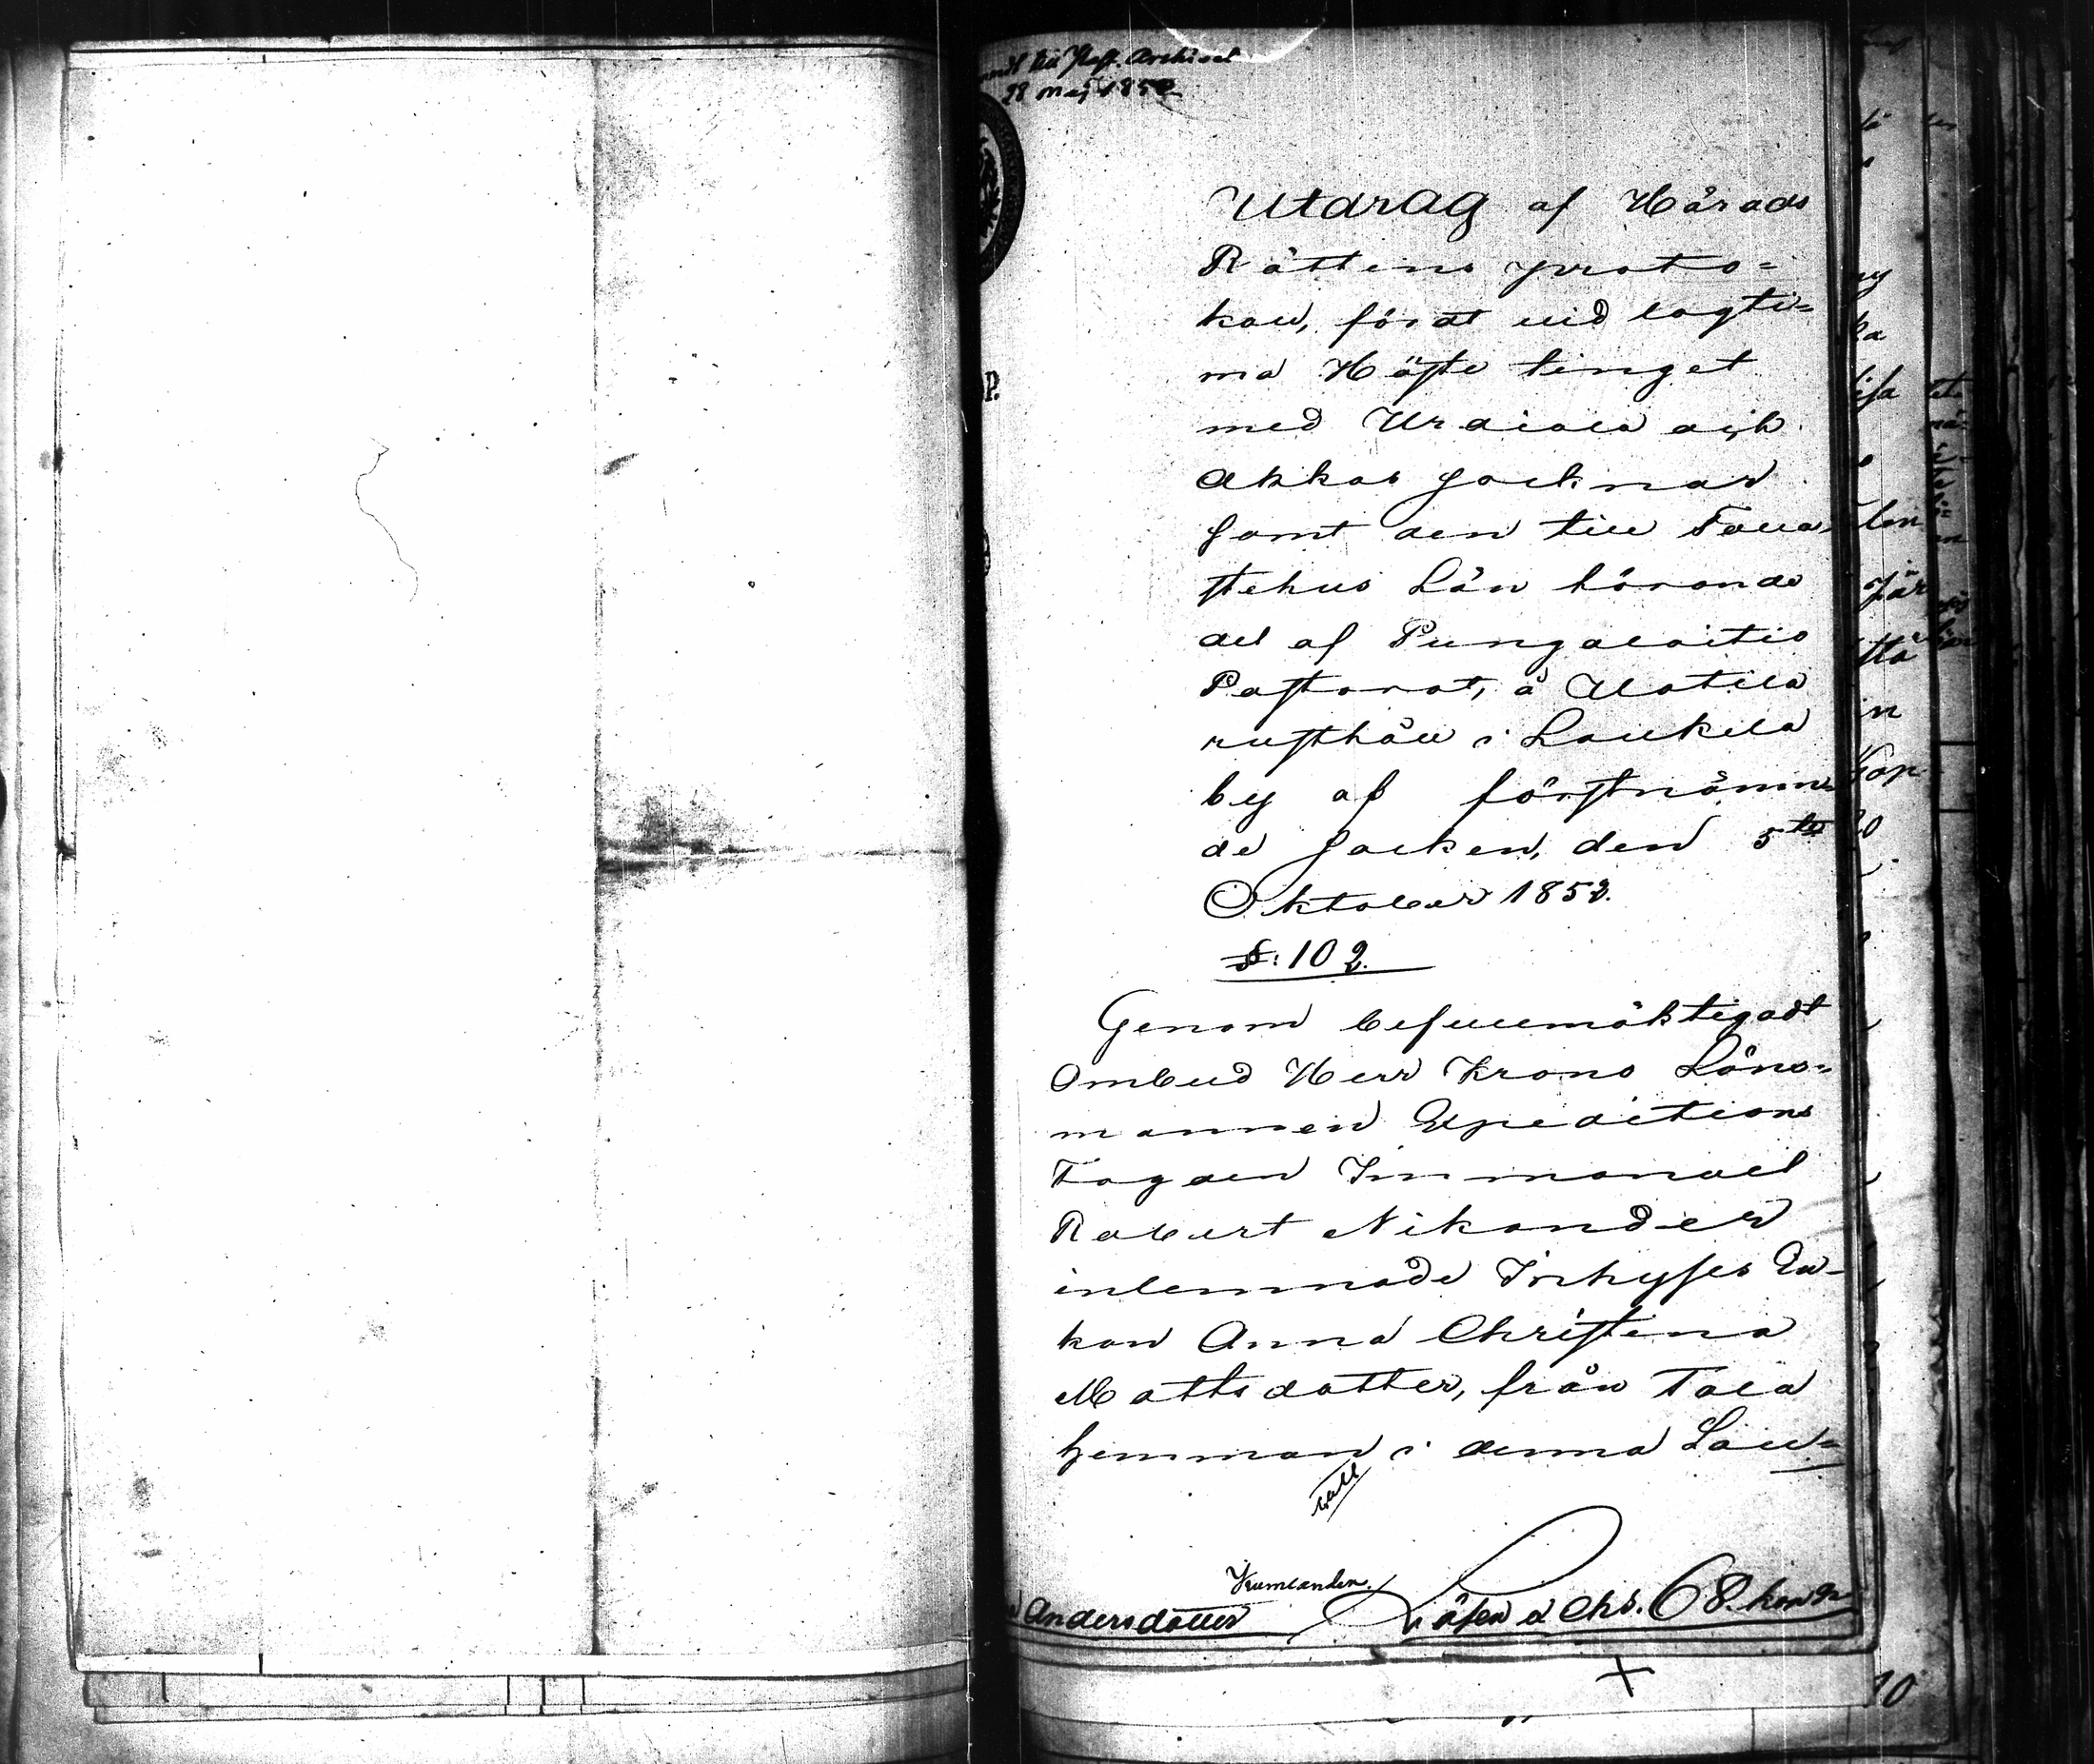 till Hofr. Archivet
28 Maj 185
P.
Utdrag af Härads
Rättens proto=
koll, fördt vid lagti=
ma Höste tinget
med Urdiala och
Akkas Socknar
samt den till Tava
stehus Län hörande
del af Pungalaitio
Pastorat, å Uotila
rusthåll i Laukela
by af förstnämn=
de Socken, den 5te
Oktober 1852.
§: 102.
Genom befullmäktigadt
Ombud Herr Krono Läns=
mannen Expeditions
Fogden Immanuel
Robert Nikander
inlemnade Inhyses En-
kan Anna Christina
Mattsdotter, från Tala
hemman i denna Lau=
Kumlander.
Andersdotter Läsen d Chs. 68. kon
10